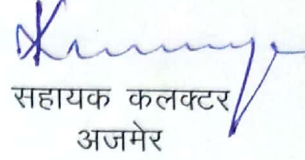 सहायक कलक्टर
अजमेर